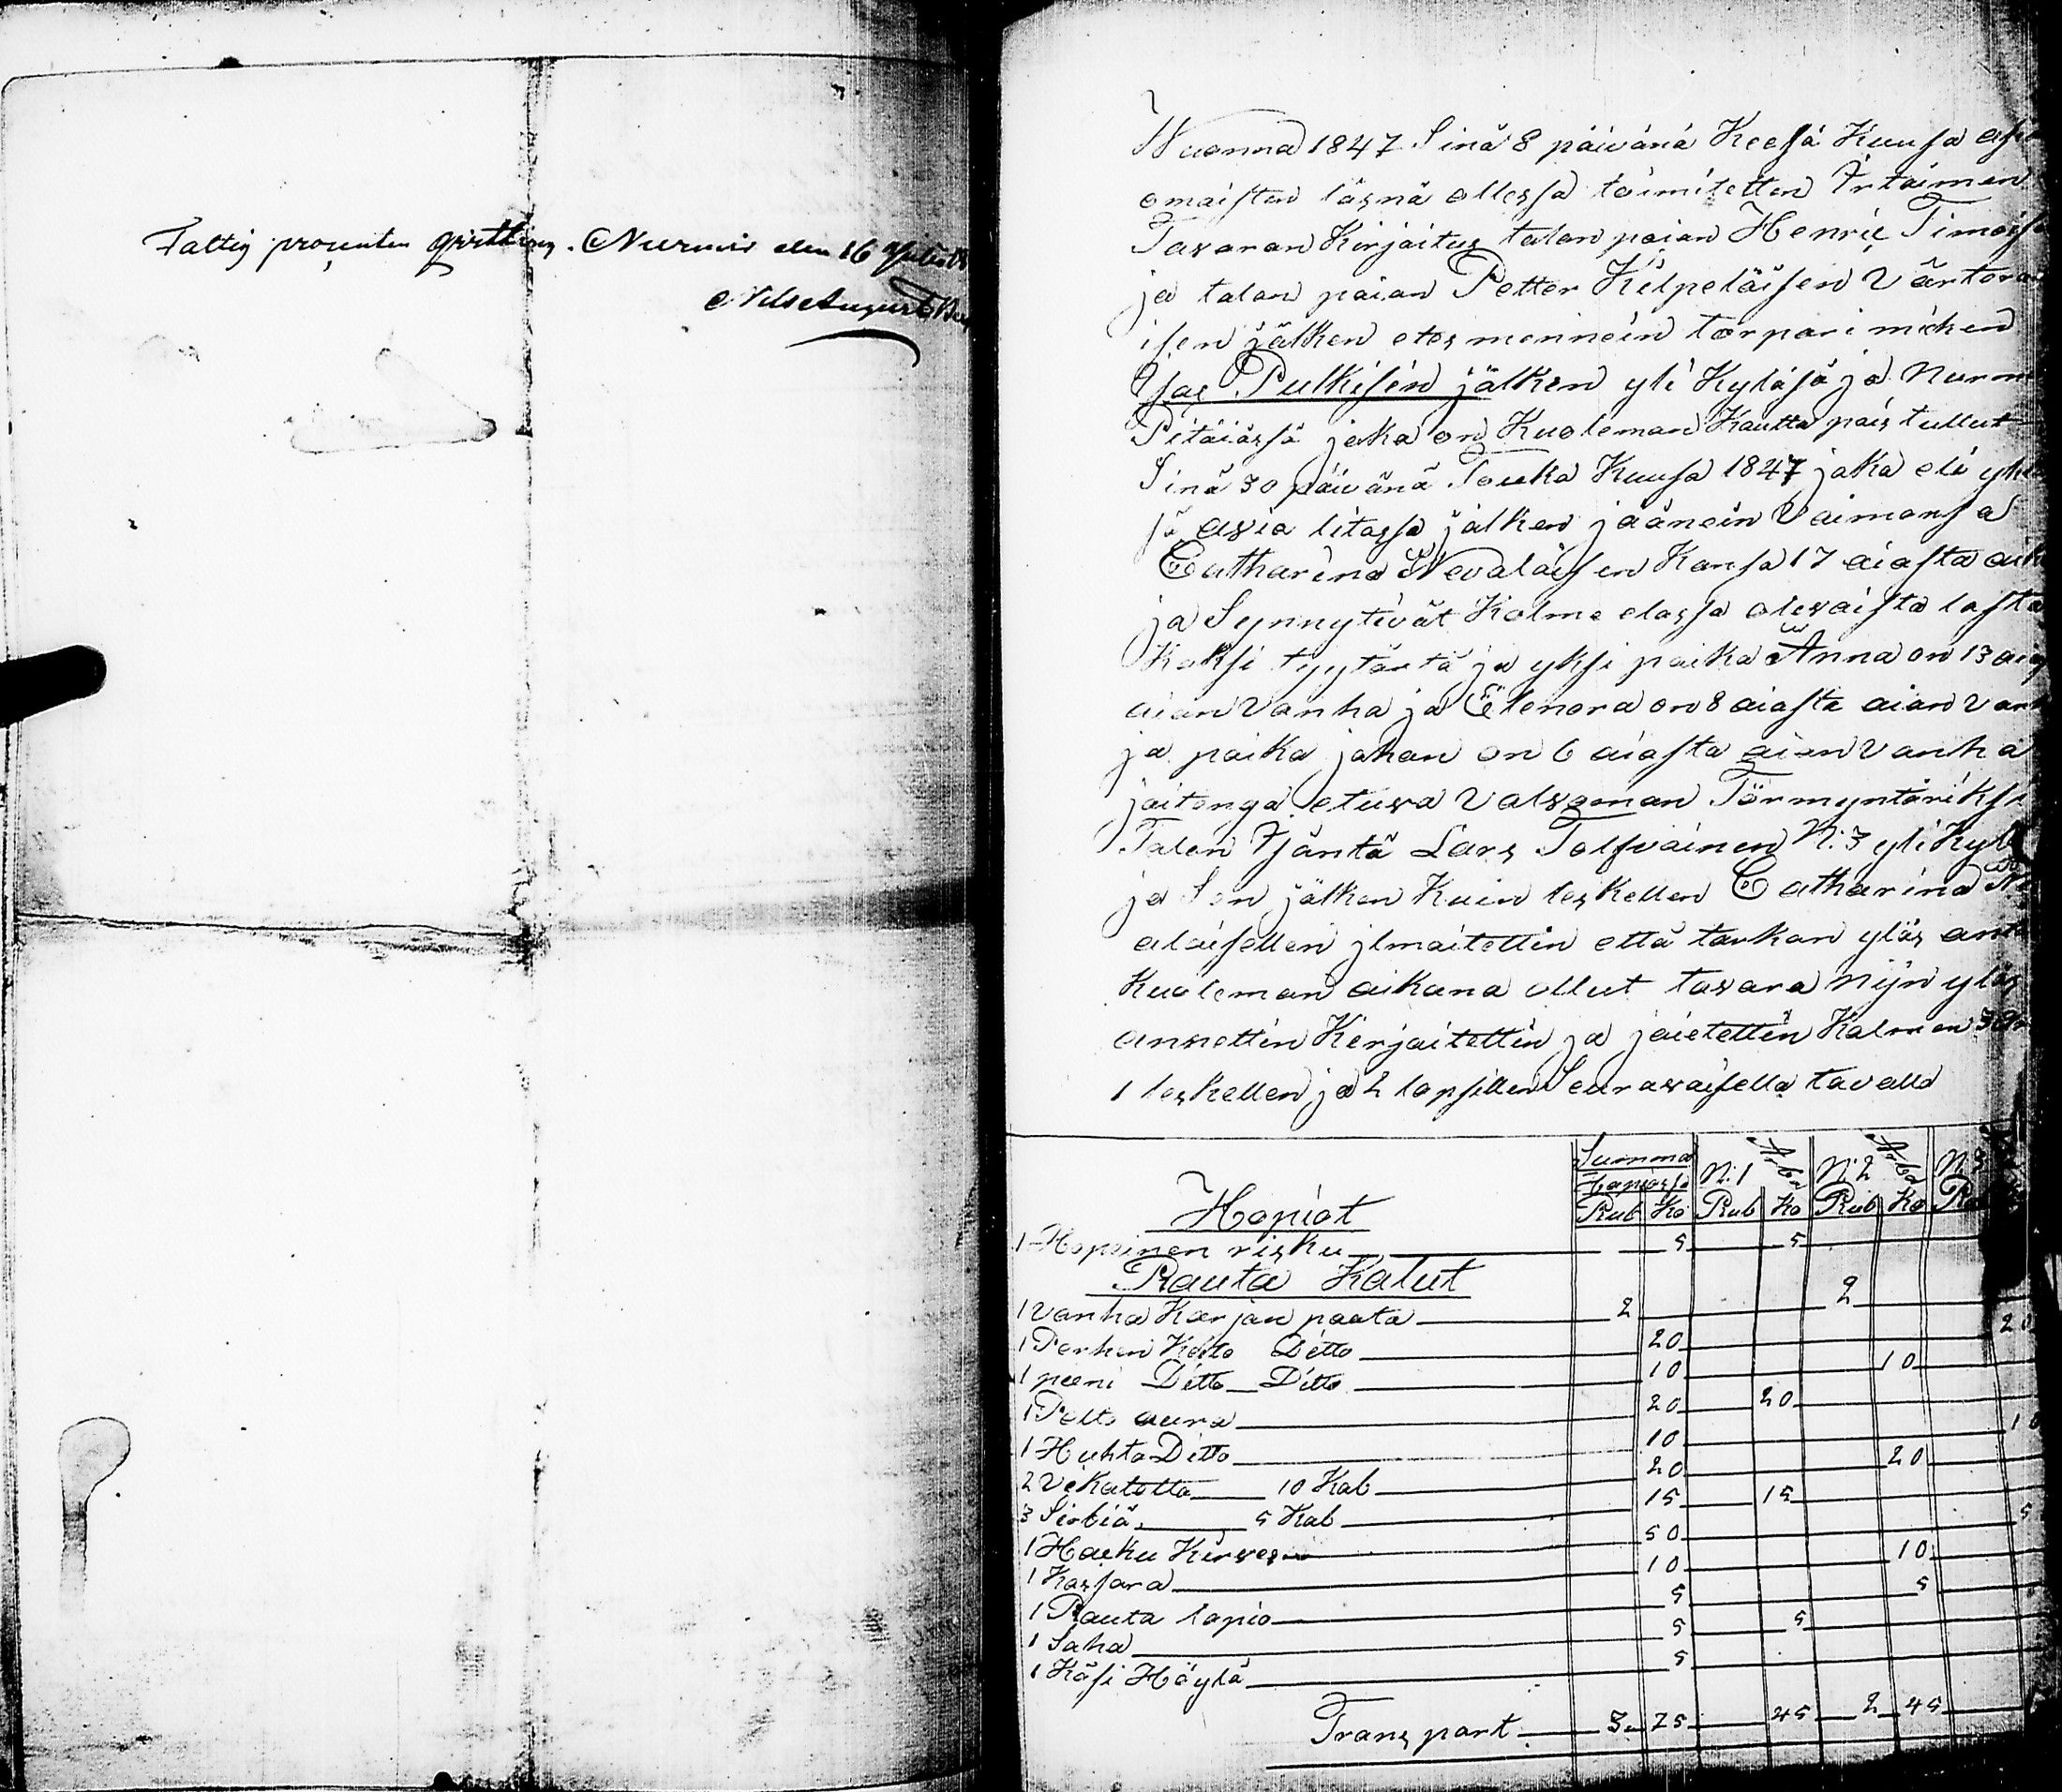 Fattig procenten qvitteras. Nurmis den 16
Nils August
Wuonna 1847 Sinä 8 päivänä Keesä Kuusa
omaisten läsnä ollessa toimitettin Irtaimen
Tavaran Kirjaitus talon poian Henric
ja talon poian Petter Kilpeläisen
isen jälken etes mennein torpari miehen
Isac Pulkisen jälken yli Kyläsä ja
Pitäiässä joka on Kuoleman Kautta pois tullut
Sinä 30 päivänä Touko Kuusa 1847 joka eli
sä avio litossa jälken jäänein Vaimonsa
Catharina Nevalaisen Kansa 17 aiasta
ja Synnytivät Kolme elossa olevaista lasta
Kaksi tyytärtä ja yksi poika Anna on 13
aian Vanha ja Elenora on 8 aiasta aian
ja poika johan on 6 aiasta aian Vanha
joitenga etuva Valvoman Förmyntäriksi
Talon Isäntä Lars Tolfvainen N:3 yli
ja Sen jälken Kuin leskellen Catharina
alaisellen jlmaitettin että tarkan ylös
Kuoleman aikana ollut tavara nijn ylös
annettin Kirjaitettin ja jaietettin Kolmen
1 leskellen ja 2 lapsillen Seuravaisella tavalla
Summa Hopiassa N:1 Arba N:2 Arba N:3
Hopiat Rub Ko Rub Ko Rub Ko
1 Hopeinen risku 5 5
Rauta Kalut
1 Vanha Karjan paata 2 2
1 Perhen Keito Ditto 20 20
1 pieni Ditto Ditto 10 10
1 Pelto aura 20 20
1 Huhta Ditto 10 10
2 Vikatetta 10 Kab 20 20
3 Sirbiä 5 Kab 15 15
1 Hacku Kirves 50 5
1 Kassara 10 10
1 Rauta lapio 5 5
1 Saha 5 5
1 Käsi Höylä 5
Transport 3 75 45 2 45